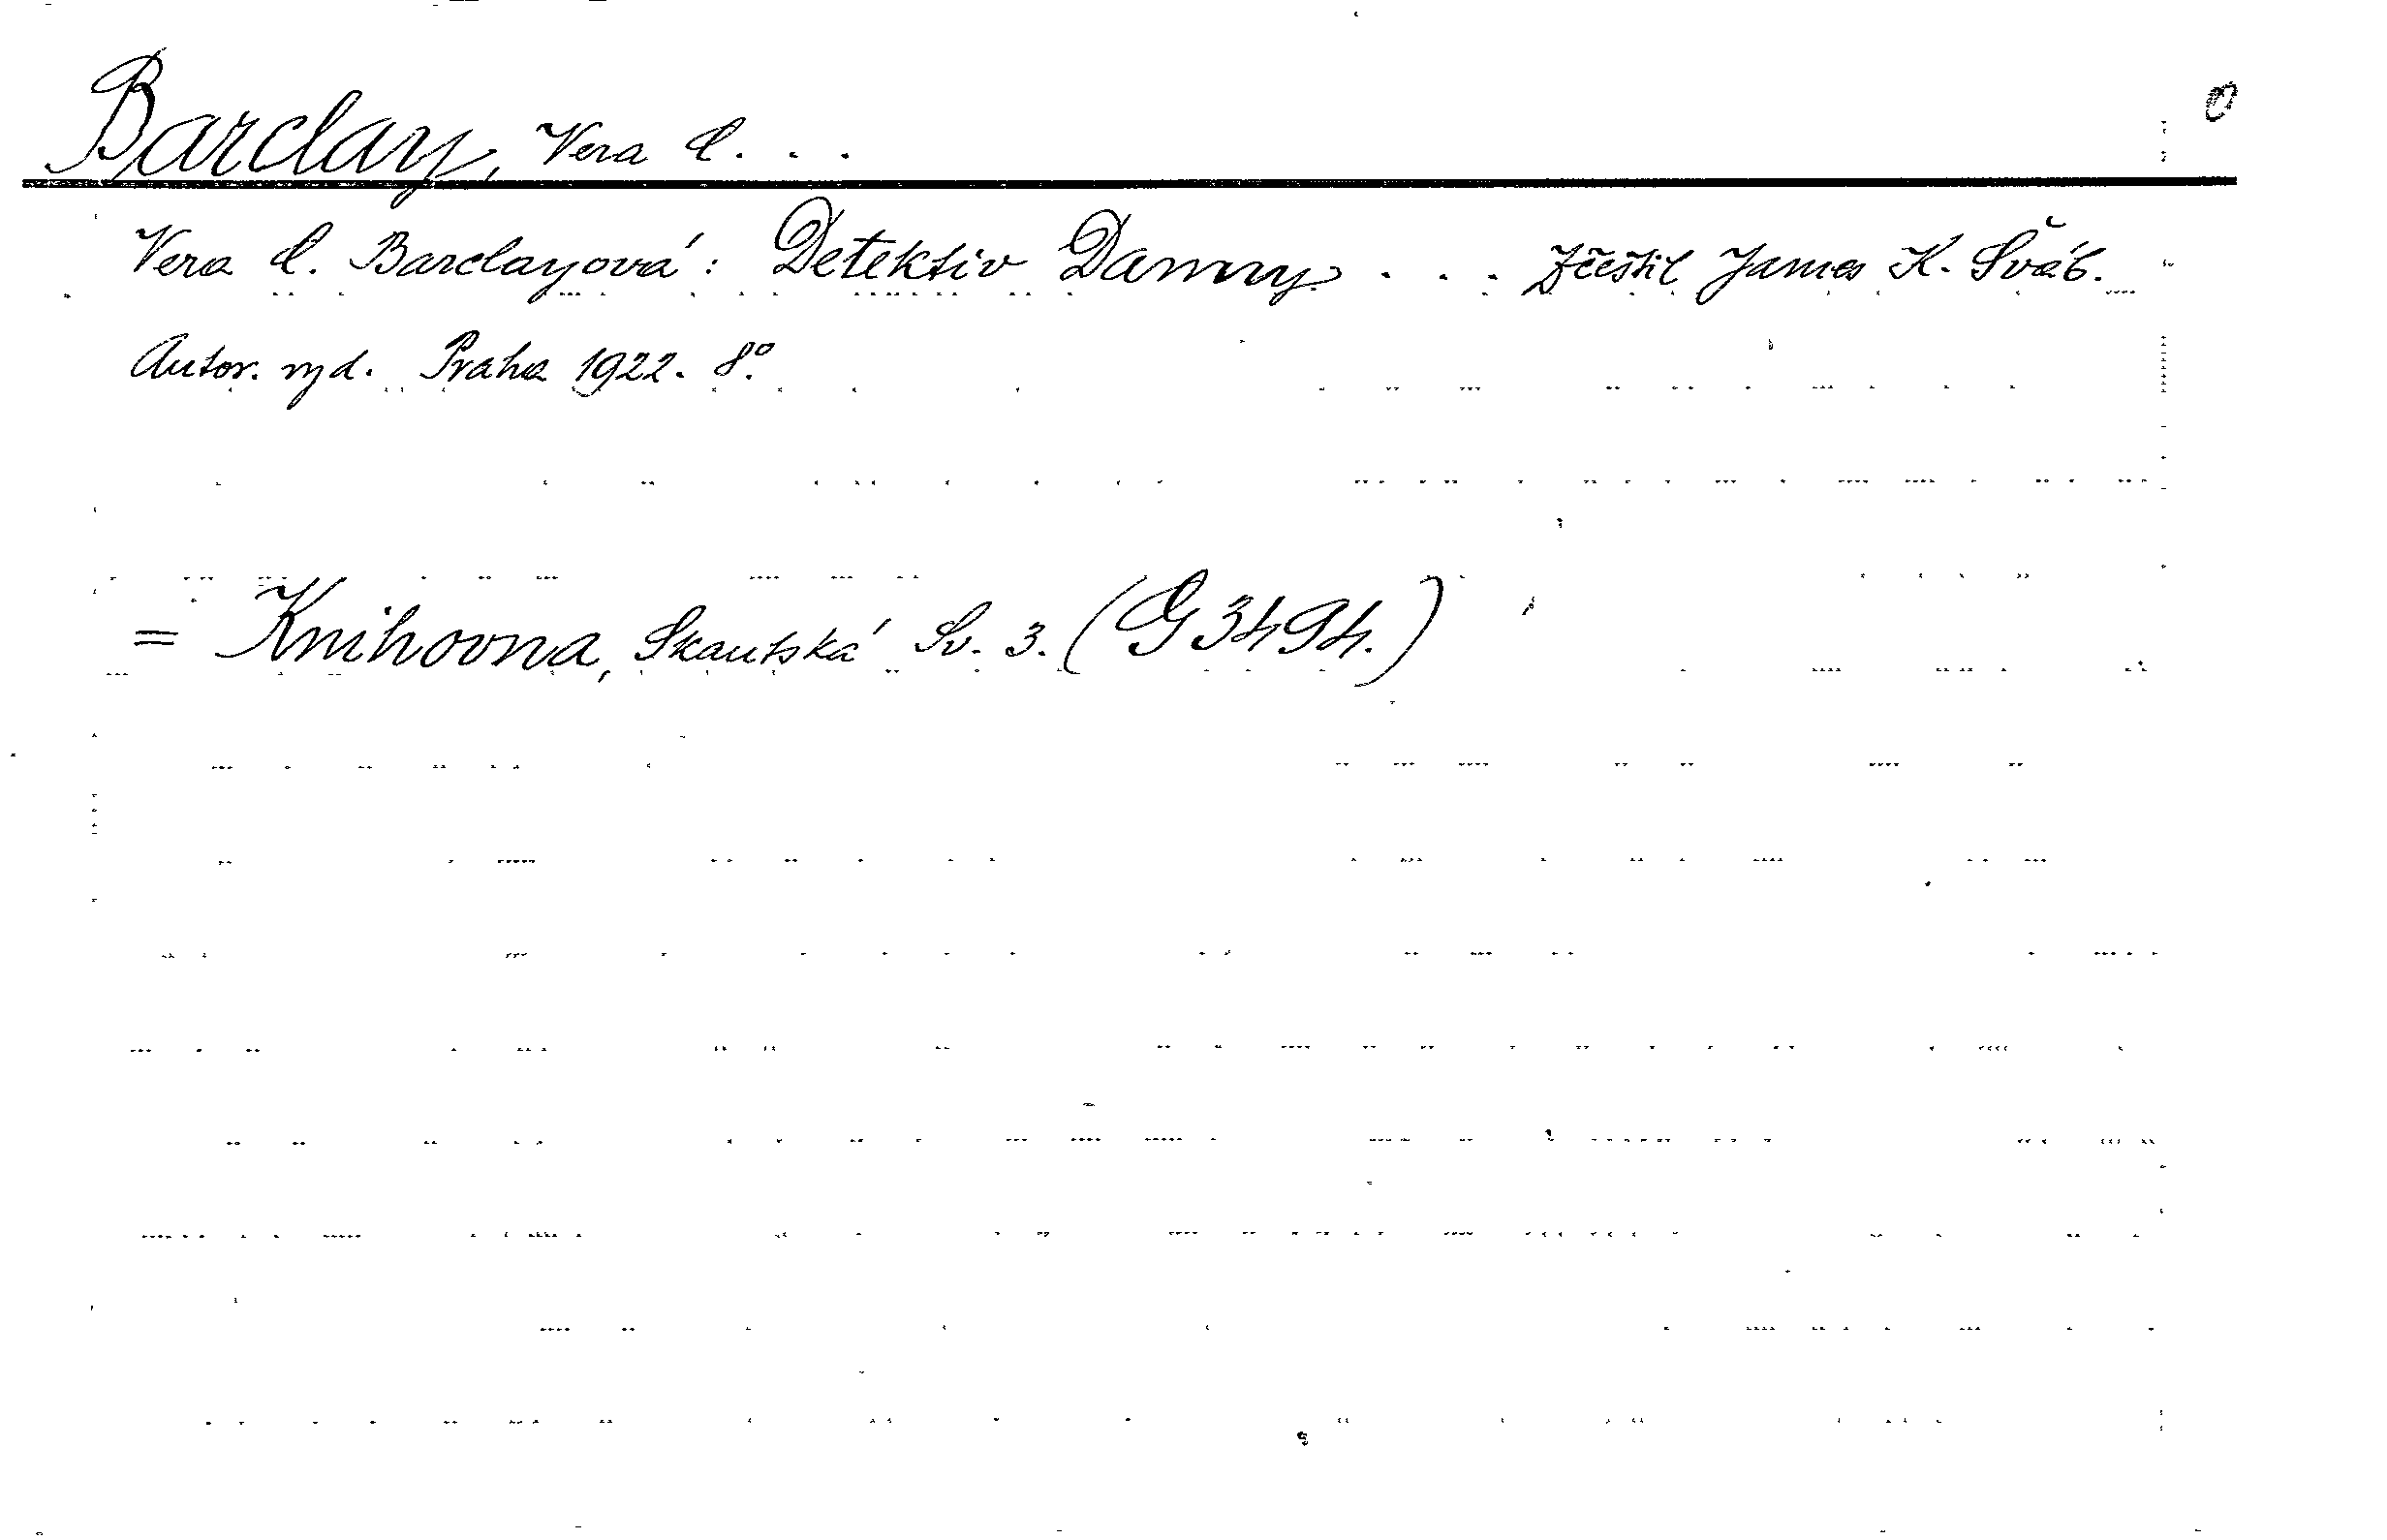 Barclay, Vera C. . .
Vera C. Barclayová: Detektiv Danny . . . Zčeštil James K. Šváb.
Autor. vyd. Praha 1922. 8°.
= Knihovna, Skautská Sv. 3. (G 3494.)